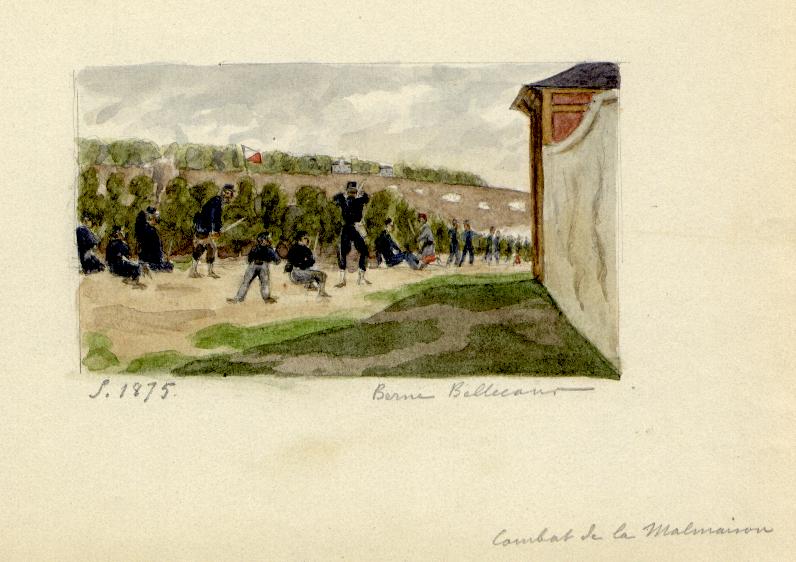 S. 1875.
Berne Bellecour
Combat de la Malmaison